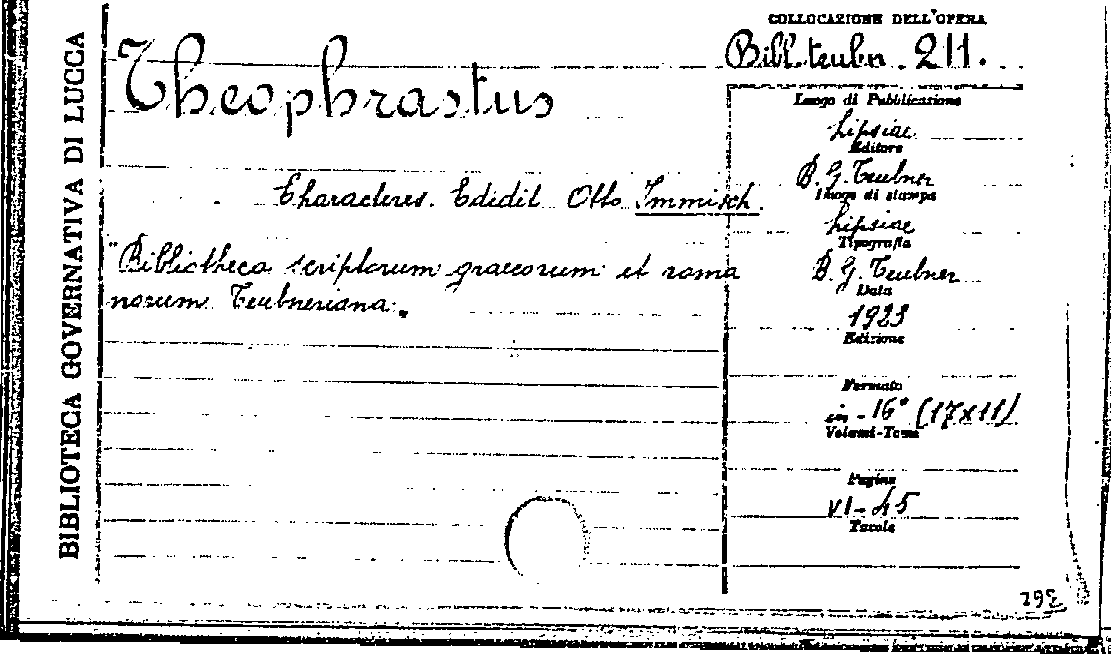 BIBLIOTECA GOVERNATIVA DI LUCCA
COLLOCAZIONE DELL'OPERA
Bibl. teubn. 211.
Theophrastus
Characteres. Edidit Otto Immisch.
"Bibliotheca scriptorum graecorum et roma
norum Teubneriana.
Luogo di Pubblicazione
Lipsiae
Editore
B. G. Teubner
Luogo di stampa
Lipsiae
Tipografia
B. G. Teubner
Data
1923
Edizione
Formato
in - 16° (17x11)
Volumi-Tomi
Pagine
VI-45
Tavole